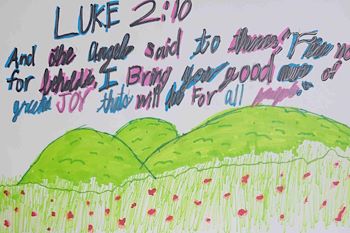 LUKE 2:10
And the Angel said to them, "Fear no
for behold, I Bring you good news of
great JOY that will be For all people.